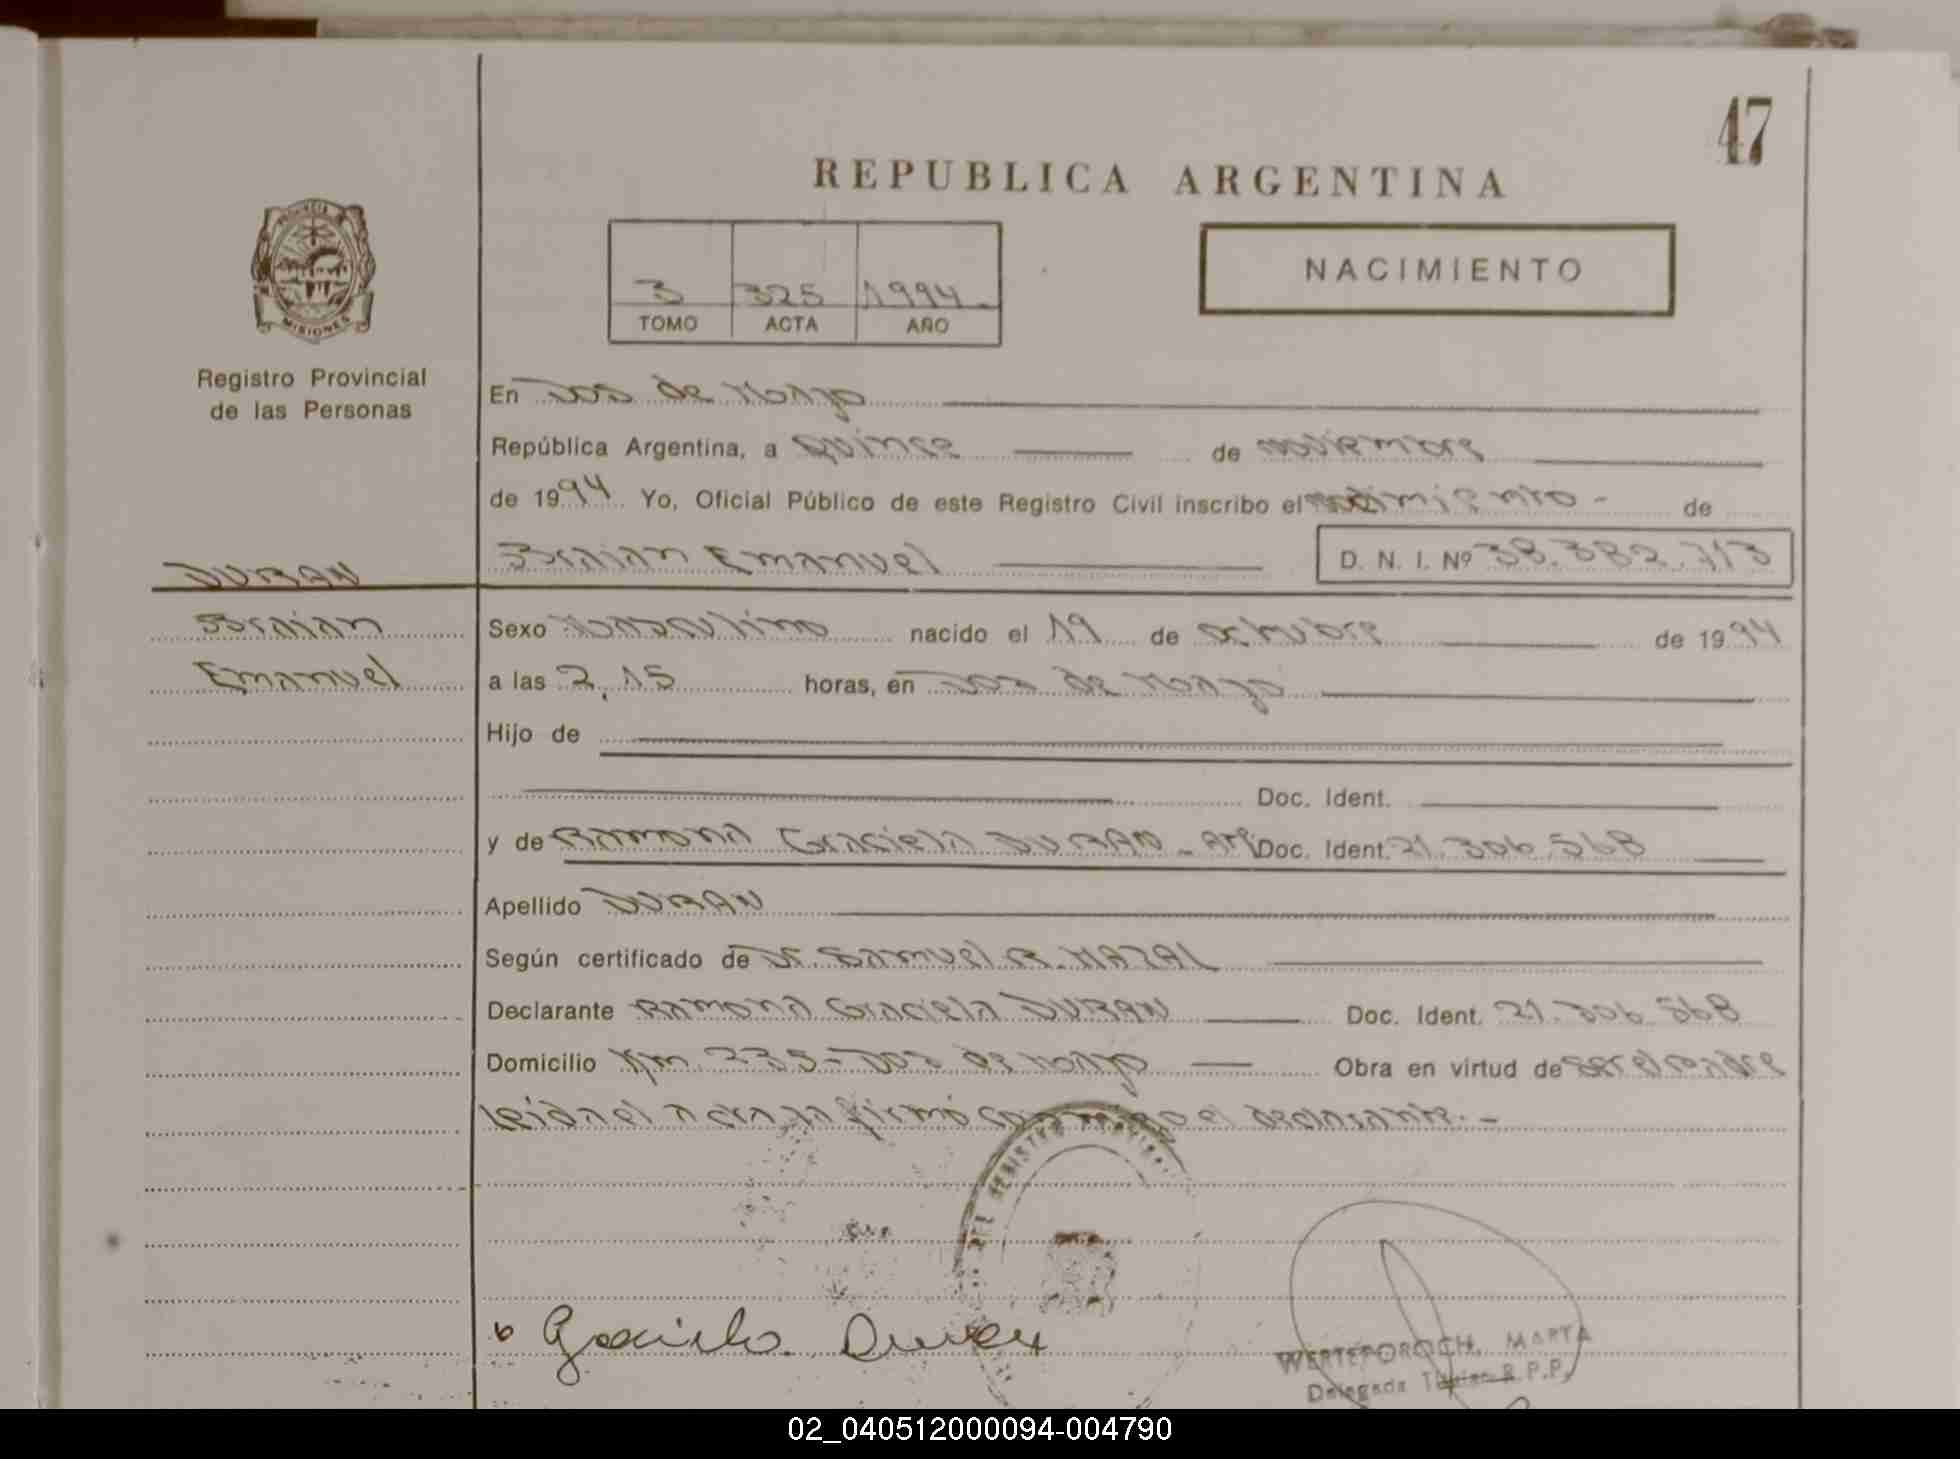 47
REPUBLICA ARGENTINA
PROVINCIA DE
MISIONES
NACIMIENTO
3 325 1994
TOMO ACTA AÑO
Registro Provincial
de las Personas
En Dos de Mayo
República Argentina, a quince de noviembre
de 1994 Yo, Oficial Público de este Registro Civil inscribo el nacimiento - de
DURAN
Braian Emanuel D. N. I. Nº 38.382.713
Braian
Sexo Masculino nacido el 19 de octubre de 1994
Emanuel
a las 2,15 horas, en Dos de Mayo
Hijo de
Doc. Ident.
y de Ramona Graciela DURAN - Arg Doc. Ident. 21.306.568
Apellido DURAN
Según certificado de Dr. Samuel R. NAZAL
Declarante Ramona Graciela DURAN Doc. Ident. 21.306.568
Domicilio Km. 235 - Dos de Mayo Obra en virtud de ser el padre
Leída el Acta la firmó conmigo el declarante. -
DEL REGISTRO
Graciela Duran
WERTEPOROCH, MARTA
Delegada Titular R.P.P.
02_040512000094-004790